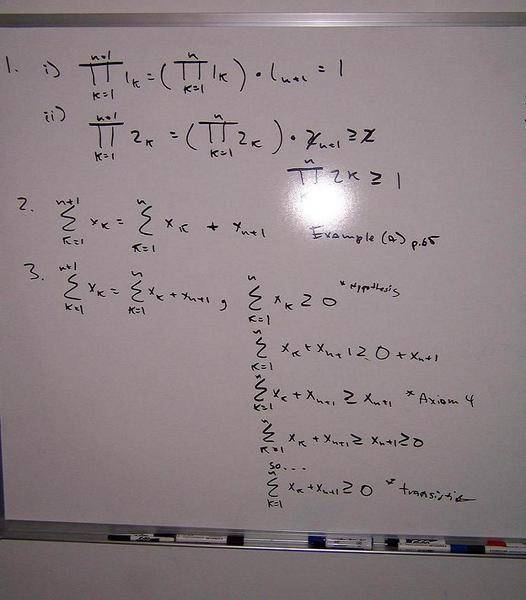 1. i) ∏_{k=1}^{n+1} 1_k = (∏_{k=1}^{n} 1_k) · 1_{n+1} = 1
ii) ∏_{k=1}^{n+1} 2_k = (∏_{k=1}^{n} 2_k) · 2_{n+1} ≥ 2
∏_{k=1}^{n} 2_k ≥ 1
2. ∑_{k=1}^{n+1} x_k = ∑_{k=1}^{n} x_k + x_{n+1} Example (a) p.65
3. ∑_{k=1}^{n+1} x_k = ∑_{k=1}^{n} x_k + x_{n+1}, ∑_{k=1}^{n} x_k ≥ 0 *Hypothesis
∑_{k=1}^{n} x_k + x_{n+1} ≥ 0 + x_{n+1}
∑_{k=1}^{n} x_k + x_{n+1} ≥ x_{n+1} *Axiom 4
∑_{k=1}^{n} x_k + x_{n+1} ≥ x_{n+1} ≥ 0
so...
∑_{k=1}^{n} x_k + x_{n+1} ≥ 0